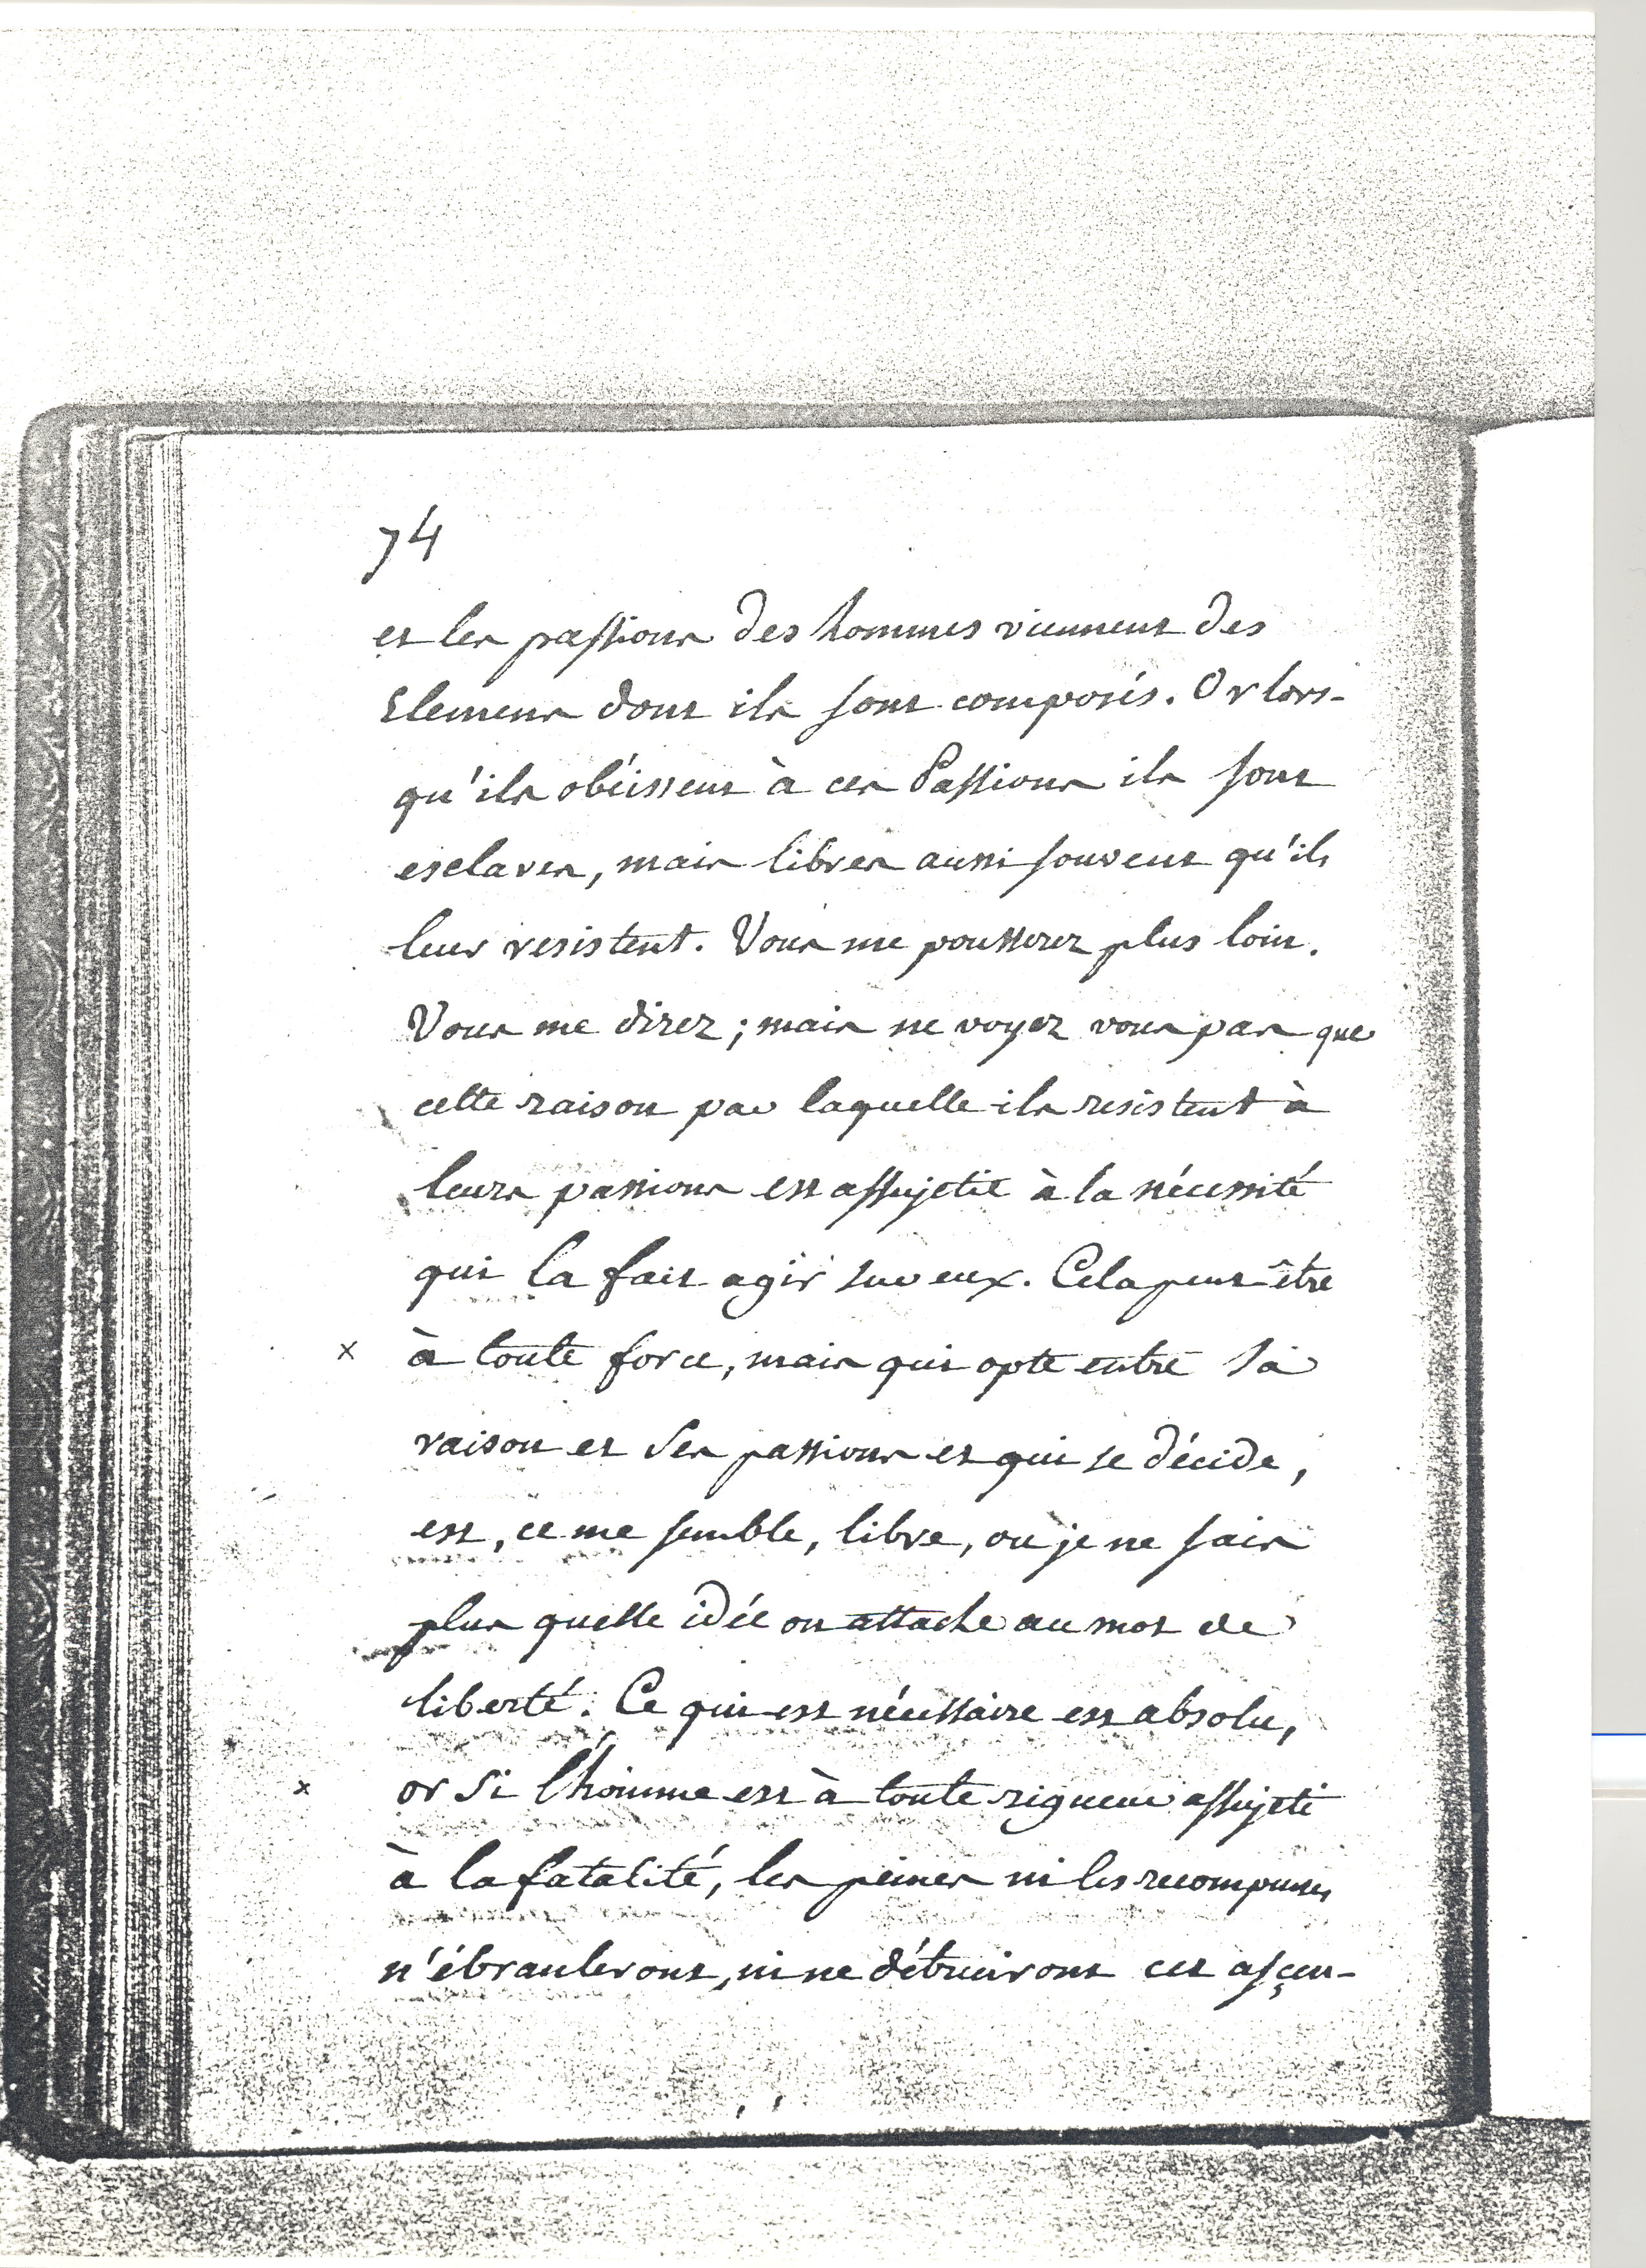 74
et les passions des hommes viennent des
Elemens dont ils sont composés. Or lors-
qu'ils obéissent à ces Passions ils sont
esclaves, mais libres aussi souvent qu'ils
leur resistent. Vous me pousserez plus loin.
Vous me direz; mais ne voyez vous pas que
cette raison par laquelle ils resistent à
leurs passions est assujetie à la nécessité
qui la fait agir sur eux. Cela peut être
x à toute force, mais qui opte entre sa
raison et ses passions et qui se décide,
est, ce me semble, libre, ou je ne sais
plus quelle idée on attache au mot de
liberté. Ce qui est nécessaire est absolu,
x or si l'homme est à toute rigueur assujeti
à la fatalité, les peines ni les recompenses
n'ébranleront, ni ne détruiront cet asçen-